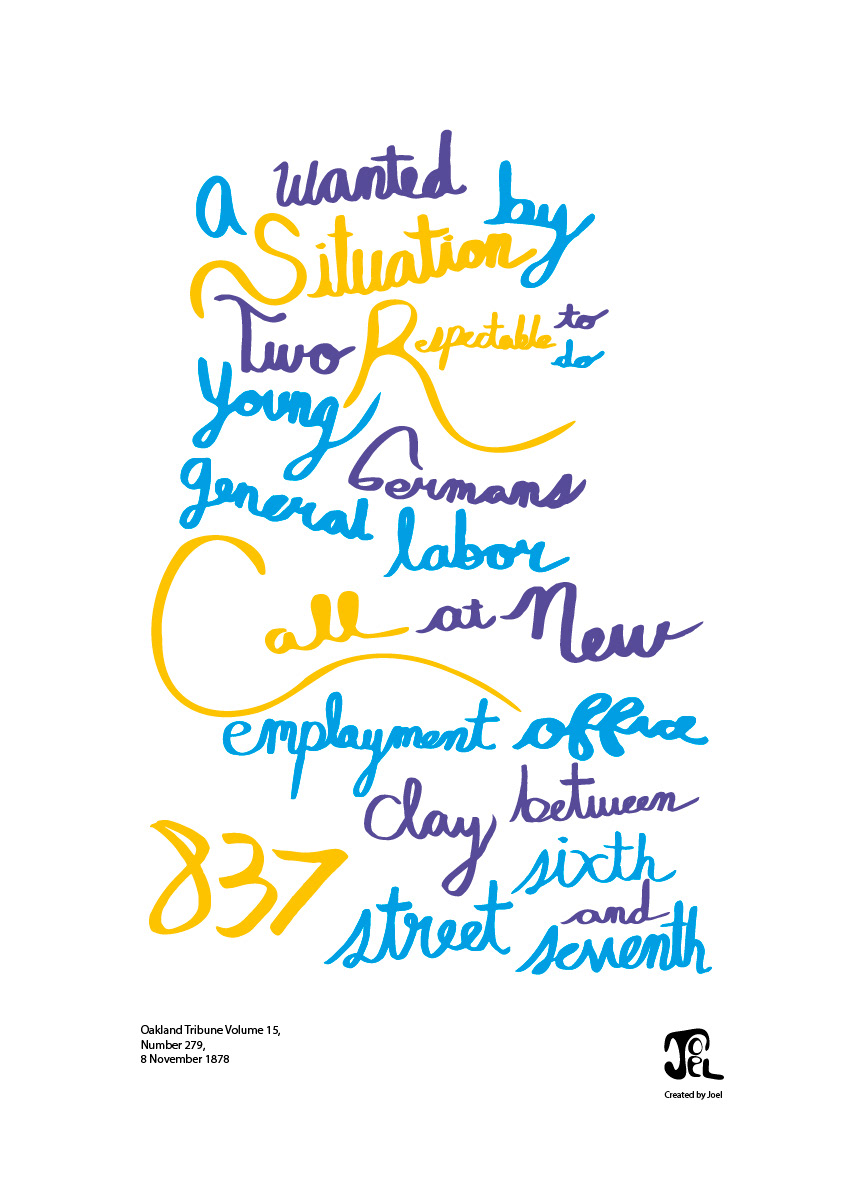 A wanted by
Situation
Two Respectable to
do
Young
Germans
general labor
Call at New
employment office
clay between
837 sixth
street and
seventh
Oakland Tribune Volume 15,
Number 279,
8 November 1878
JOEL
Created by Joel